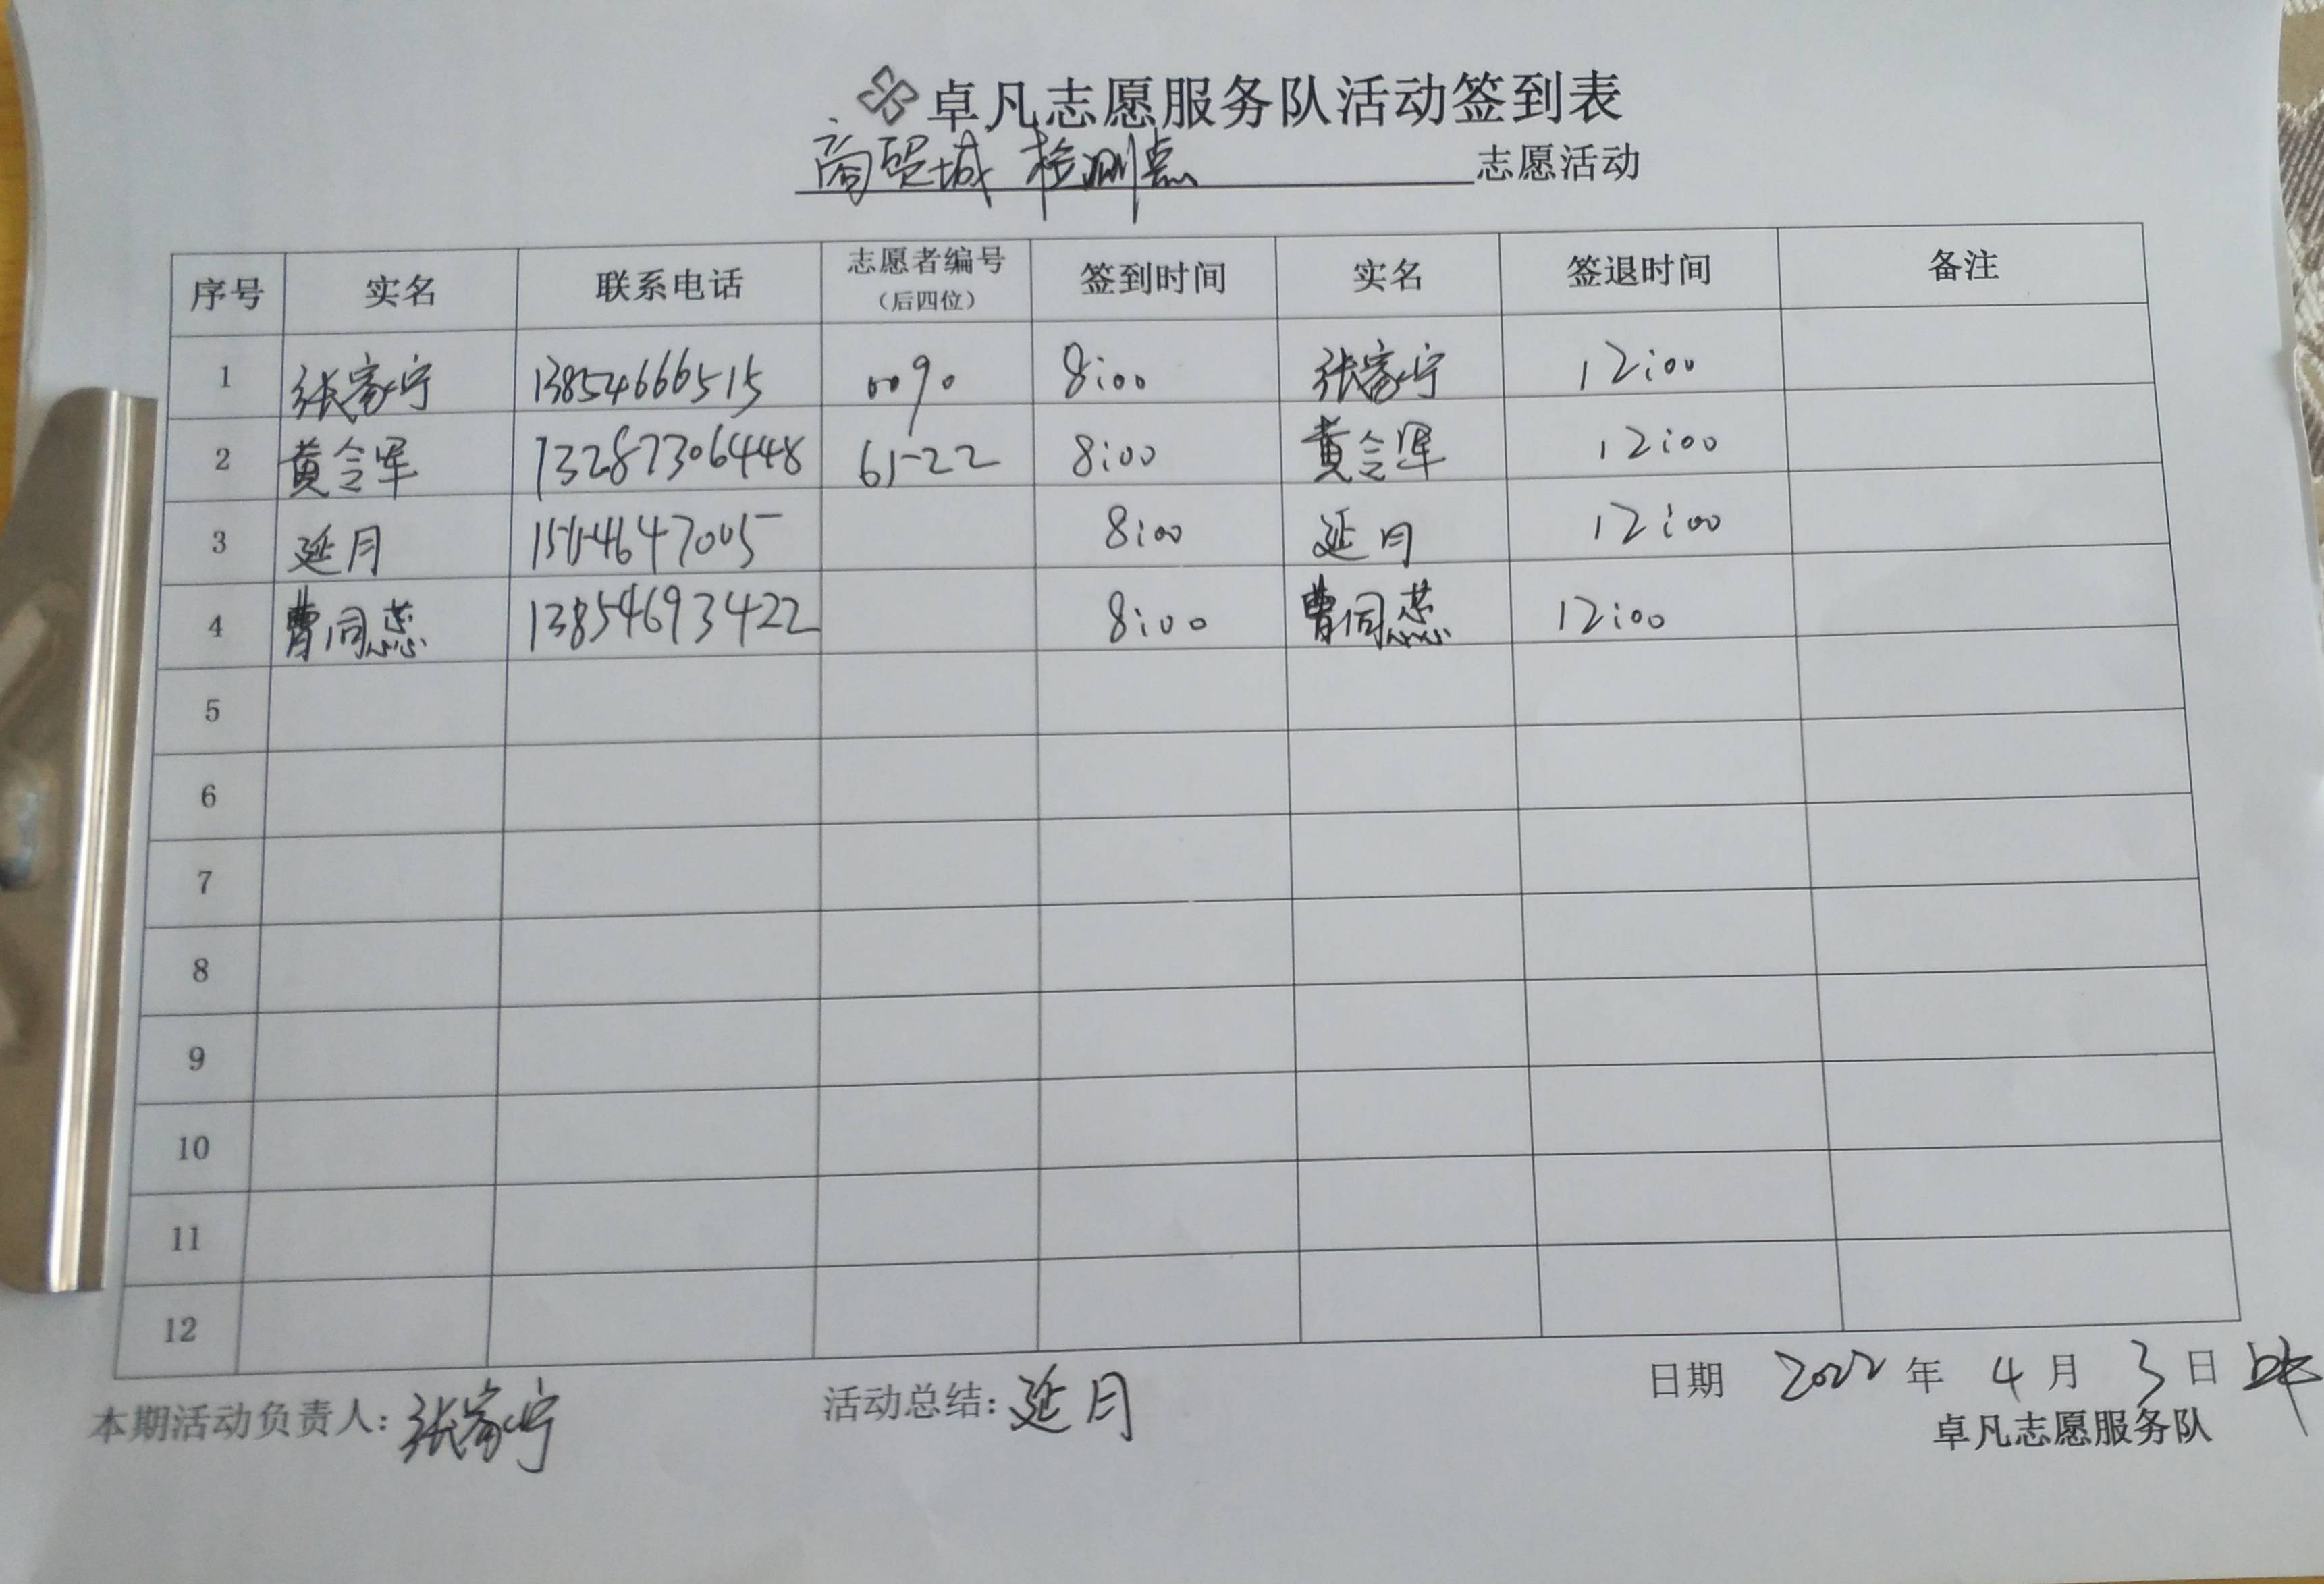 卓凡志愿服务队活动签到表
商贸城 检测点 志愿活动
序号 实名 联系电话 志愿者编号（后四位） 签到时间 实名 签退时间 备注
1 张家宁 13854666515 0090 8:00 张家宁 12:00
2 黄令军 13287306448 6522 8:00 黄令军 12:00
3 延月 8:00 延月 12:00
4 曹同蕊 13854693422 8:00 曹同蕊 12:00
5
6
7
8
9
10
11
12
本期活动负责人: 张家宁 活动总结: 延月 日期 2022 年 4 月 3 日
卓凡志愿服务队